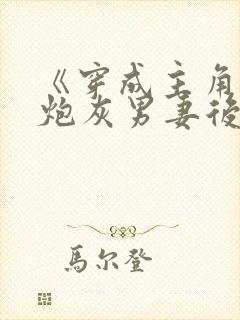 《穿成主角
炮灰男妻後
馬尔登